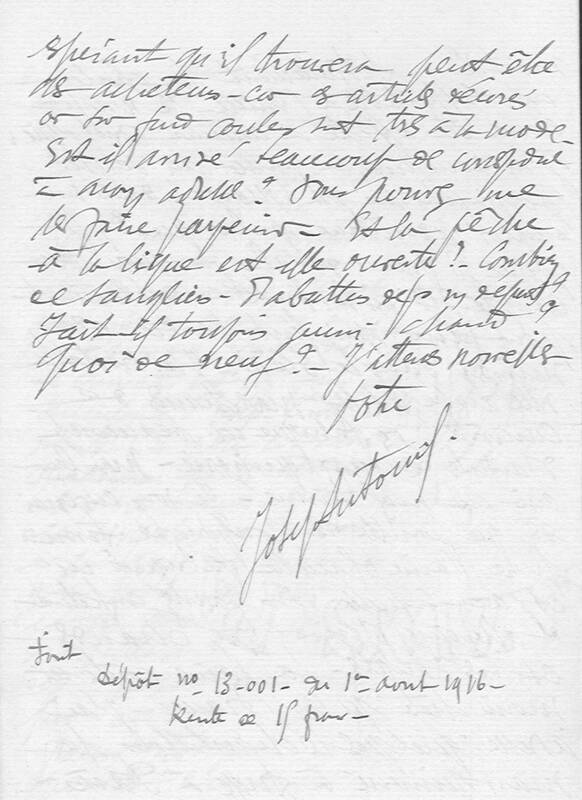 espérant qu'il trouvera peut être
des acheteurs - car ces articles
or sur fond couleur sont très à la mode -
Est il arrivé beaucoup de
à mon adresse ? Vous pouvez me
le faire parvenir - Est la pêche
à la ligne est elle ouverte ? - Combien
de sangliers - d'abattus depuis départ ?
Fait-il toujours aussi chaud ?
Quoi de neuf ? - J'attends nouvelles
Votre
Joseph Antoine.
dépôt no 13-001 - du 1er aout 1916 -
Rente de 15 francs -